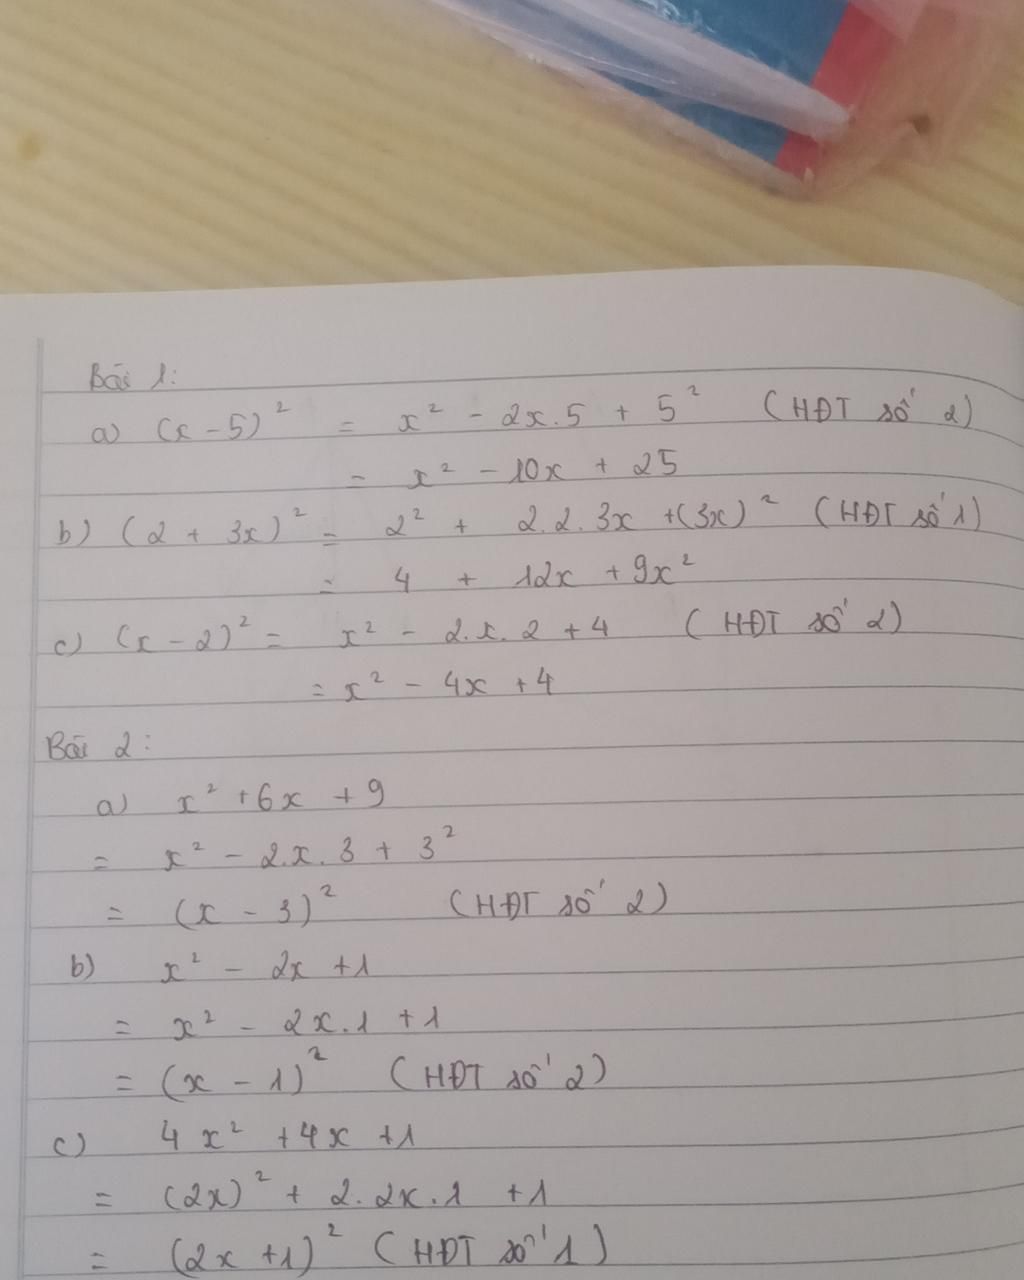 Bài 1:
a) (x - 5)² = x² - 2x.5 + 5² (HĐT số 2)
= x² - 10x + 25
b) (2 + 3x)² = 2² + 2.2.3x +(3x)² (HĐT số 1)
= 4 + 12x + 9x²
c) (x - 2)² = x² - 2.x.2 + 4 (HĐT số 2)
= x² - 4x + 4
Bài 2:
a) x² + 6x + 9
= x² - 2.x.3 + 3²
= (x - 3)² (HĐT số 2)
b) x² - 2x + 1
= x² - 2x.1 + 1
= (x - 1)² (HĐT số 2)
c) 4x² + 4x + 1
= (2x)² + 2.2x.1 + 1
= (2x + 1)² (HĐT số 1)